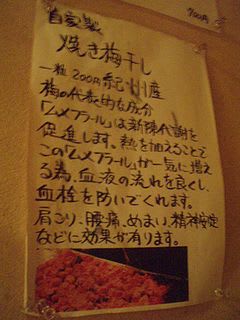 700円
自家製
焼き梅干し
一粒200円紀州産
梅の代表的な成分
「ムメフラール」は新陳代謝を
促進します。熱を加えることで
この「ムメフラール」が一気に増え
る為、血液の流れを良くし、
血栓を防いでくれます。
肩こり、腰痛、めまい、精神安定
などに効果が有ります。